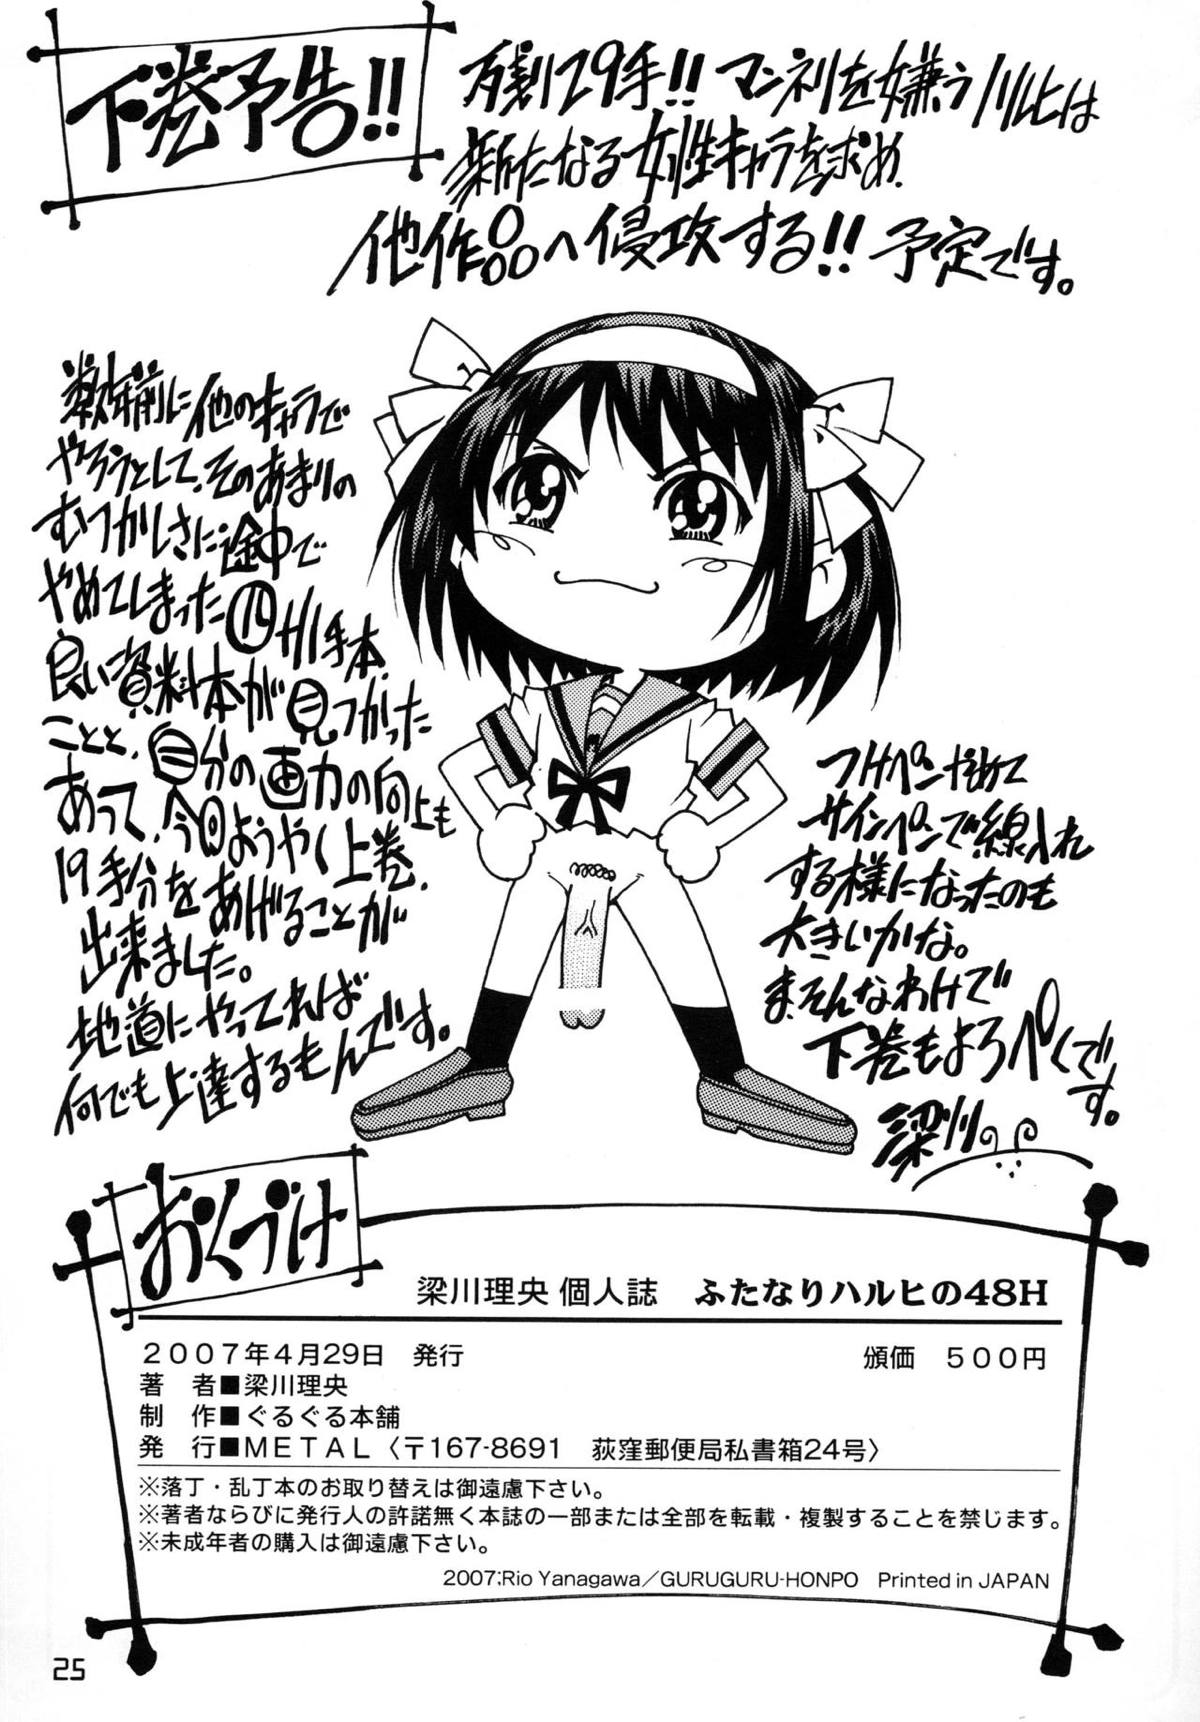 下巻予告!!
残り29手!! マンネリを嫌うハルヒは
新たなる女性キャラを求め
他作品へ侵攻する!! 予定です。
数年前に他のキャラで
やろうとして、そのあまりの
むつかしさに途中で
やめてしまった
良い資料本が見つかった
ことと、自分の画力の向上も
あって、今回ようやく上巻、
19手分をあげることが
出来ました。
地道にやってれば
何でも上達するもんです。
つけペンやめて
サインペンで線入れ
する様になったのも
大きいかな。
ま、そんなわけで
下巻もよろぺくです。
梁川。
おくづけ
梁川理央 個人誌 ふたなりハルヒの48H
2007年4月29日 発行 頒価 500円
著 者■梁川理央
制 作■ぐるぐる本舗
発 行■METAL〈〒167-8691 荻窪郵便局私書箱24号〉
※落丁・乱丁本のお取り替えは御遠慮下さい。
※著者ならびに発行人の許諾無く本誌の一部または全部を転載・複製することを禁じます。
※未成年者の購入は御遠慮下さい。
2007;Rio Yanagawa／GURUGURU-HONPO Printed in JAPAN
25